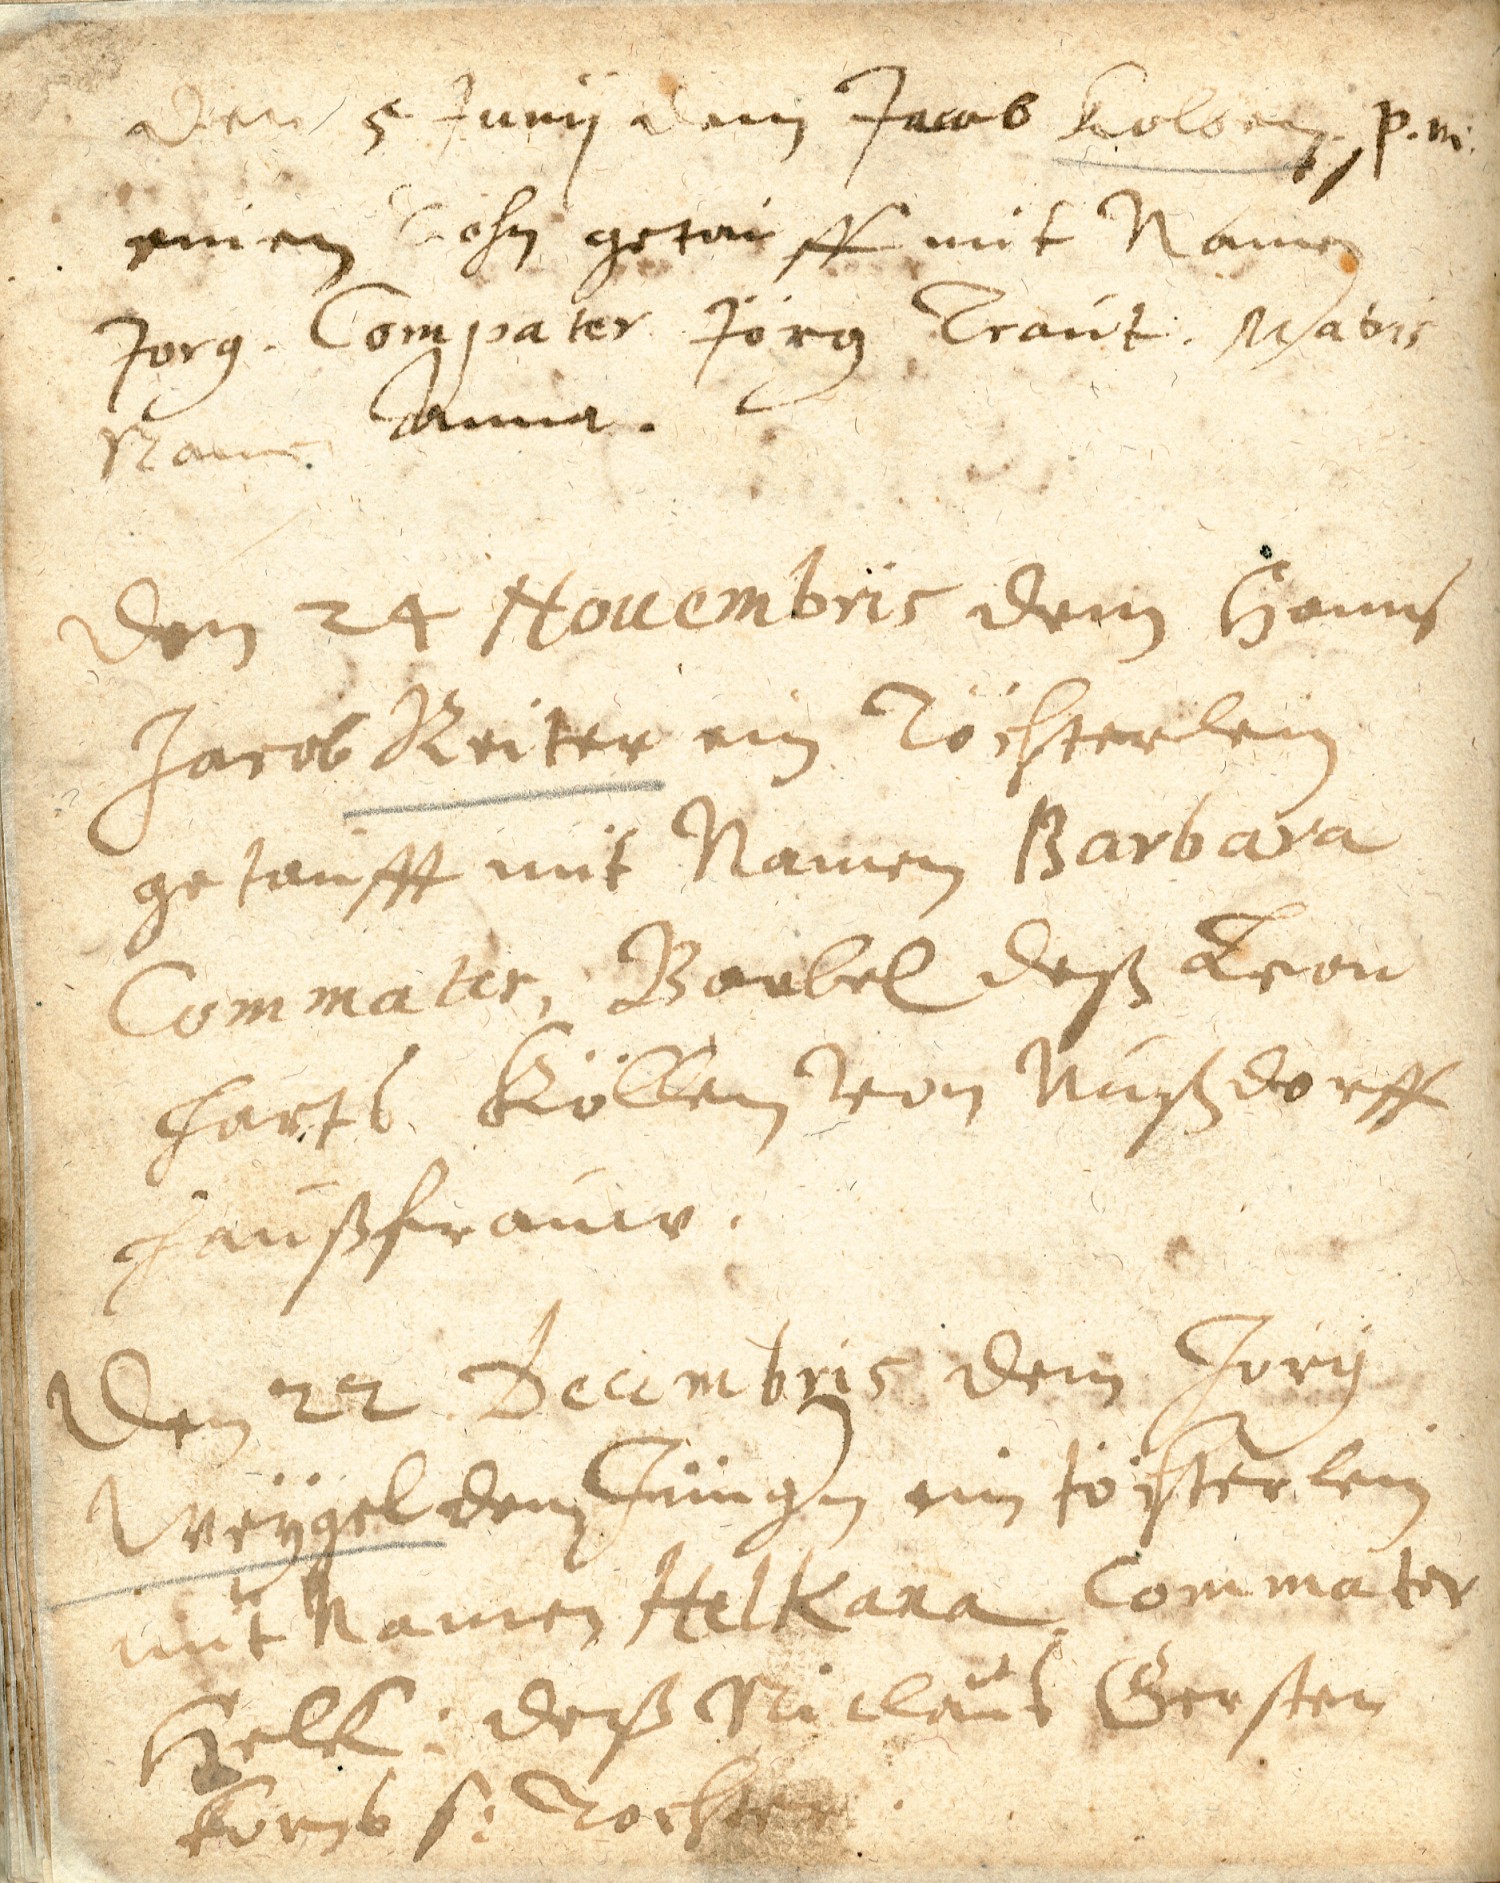 Den 5 Junij dem Jacob Kolben, p. m.
einen Sohn getaufft mit Namen
Jorg. Compater Jörg Traut. Matris
Nam. Anna.
Den 24 Nouembris dem Hanns
Jacob Reiter ein Töchterlein
getaufft mit Namen Barbara
Commater, Barbel deß Leon
harts Köllen von Nußdorff
haußfrauw.
Den 22 Decembris dem Jorg
Weÿgel dem Jüngn ein töchterlein
mit Namen Helkana Commater
Helk: deß Niclauß Gersten
korns s: Tochter.